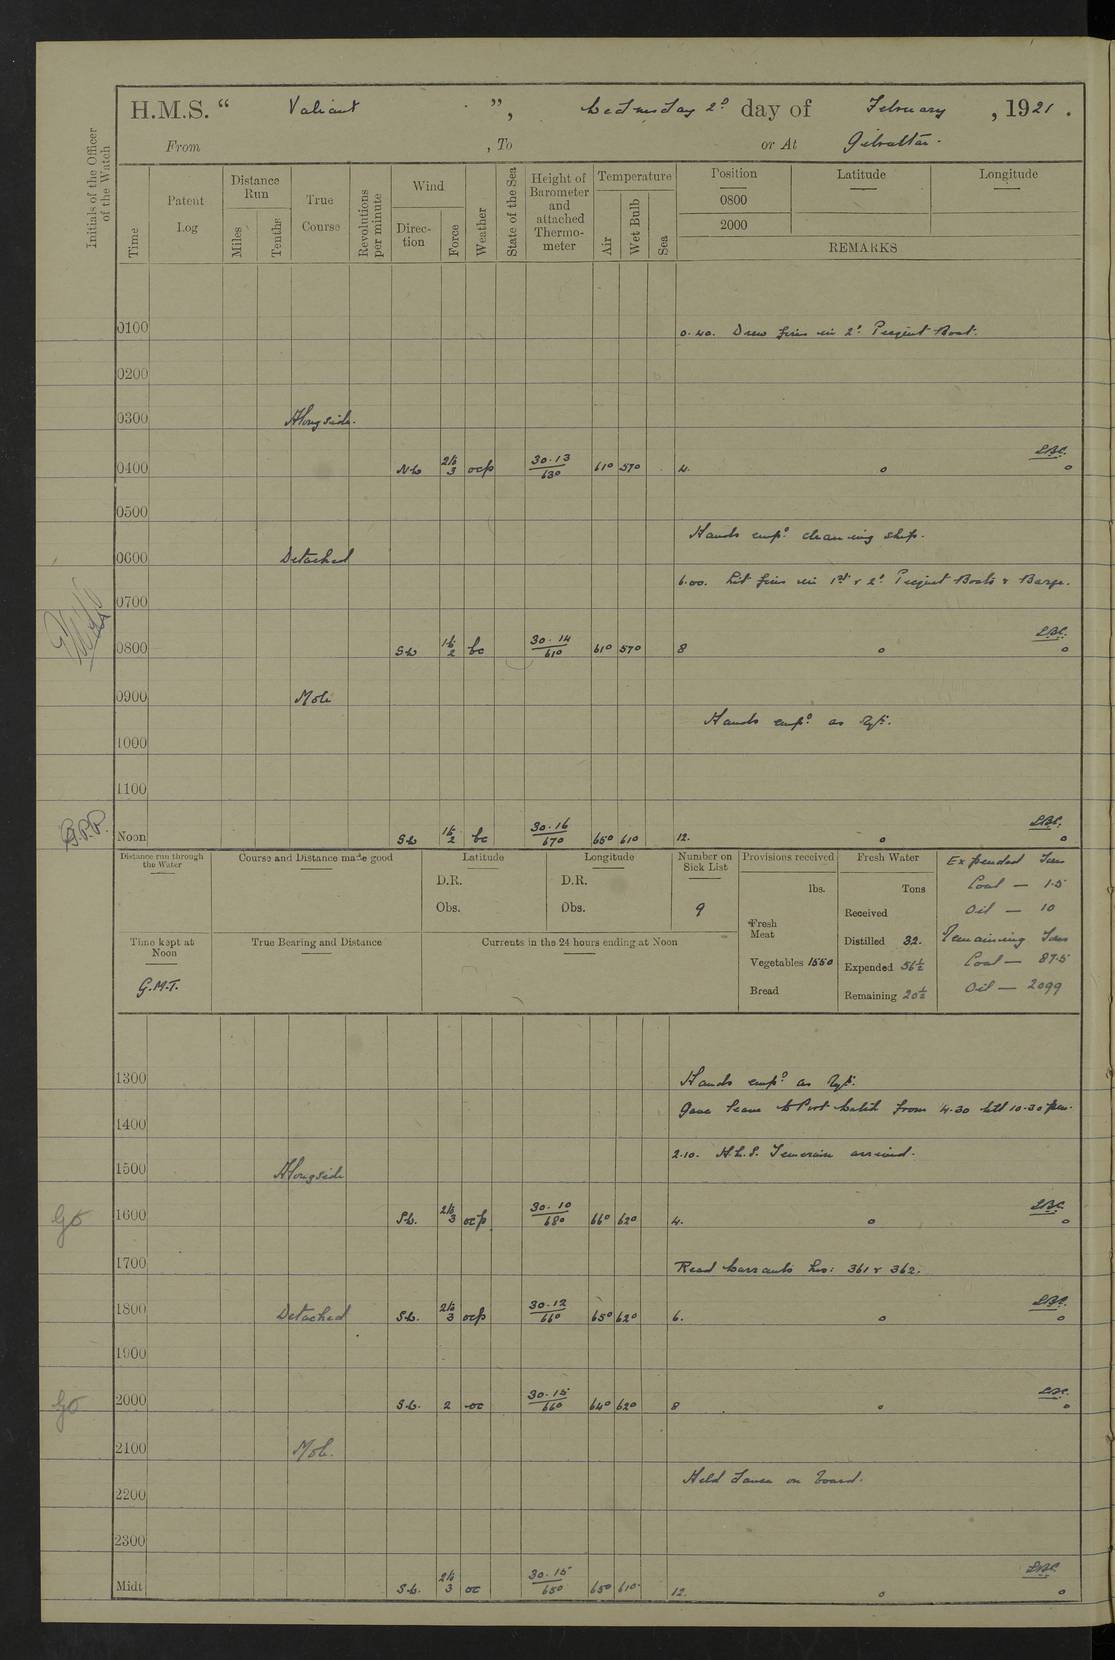 H.M.S. “ Valiant ”, Wednesday 2º day of February, 1921.
From , To or At Gibraltar.
Initials of the Officer of the Watch
Time
Patent Log
Distance Run
Miles
Tenths
True Course
Revolutions per minute
Wind
Direction
Force
Weather
State of the Sea
Height of Barometer and attached Thermometer
Temperature
Air
Wet Bulb
Sea
Position Latitude Longitude
0800
2000
REMARKS
0100 0.40. Drew fires in 2º Picquet Boat.
0200
0300 Alongside.
L.B.C.
0400 N.W 2 to 3 ocp 30.13 63º 61º 57º 4.
0500
Hands empº cleaning ship.
0600 Detached
6.00. Lit fires in 1st & 2º Picquet Boats & Barge.
0700
L.B.C.
0800 S.W 1 to 2 bc 30.14 61º 61º 57º 8
0900 Mole
Hands empº as Rqt.
1000
1100
G.P.P. L.B.C.
Noon S.W 1 to 2 bc 30.16 67º 65º 61º 12.
Distance run through the Water
Course and Distance made good
Latitude
D.R.
Obs.
Longitude
D.R.
Obs.
Number on Sick List
9
Provisions received
lbs.
Fresh Meat
Vegetables 1550
Bread
Fresh Water
Tons
Received
Distilled 32.
Expended 56½
Remaining 20½
Expended Tons
Coal — 1.5
Oil — 10
Remaining Tons
Coal — 87.5
Oil — 2099
Time kept at Noon
G.M.T.
True Bearing and Distance
Currents in the 24 hours ending at Noon
1300 Hands empº as Rqt.
Gave leave to Port Watch from 4.30 till 10.30 pm.
1400
2.10. H.M.S. Temeraire arrived.
1500 Alongside
L.B.C.
1600 S.W. 2 to 3 ocp 30.10 68º 66º 62º 4.
1700 Read Warrants Nos: 361 & 362.
L.B.C.
1800 Detached S.W. 2 to 3 ocp 30.12 66º 65º 62º 6.
1900
L.B.C.
2000 S.W. 2 oc 30.15 66º 64º 62º 8
2100 Mole.
Held Dance on board.
2200
2300
L.B.C.
Midt S.W. 2 to 3 oc 30.15 65º 65º 61º 12.